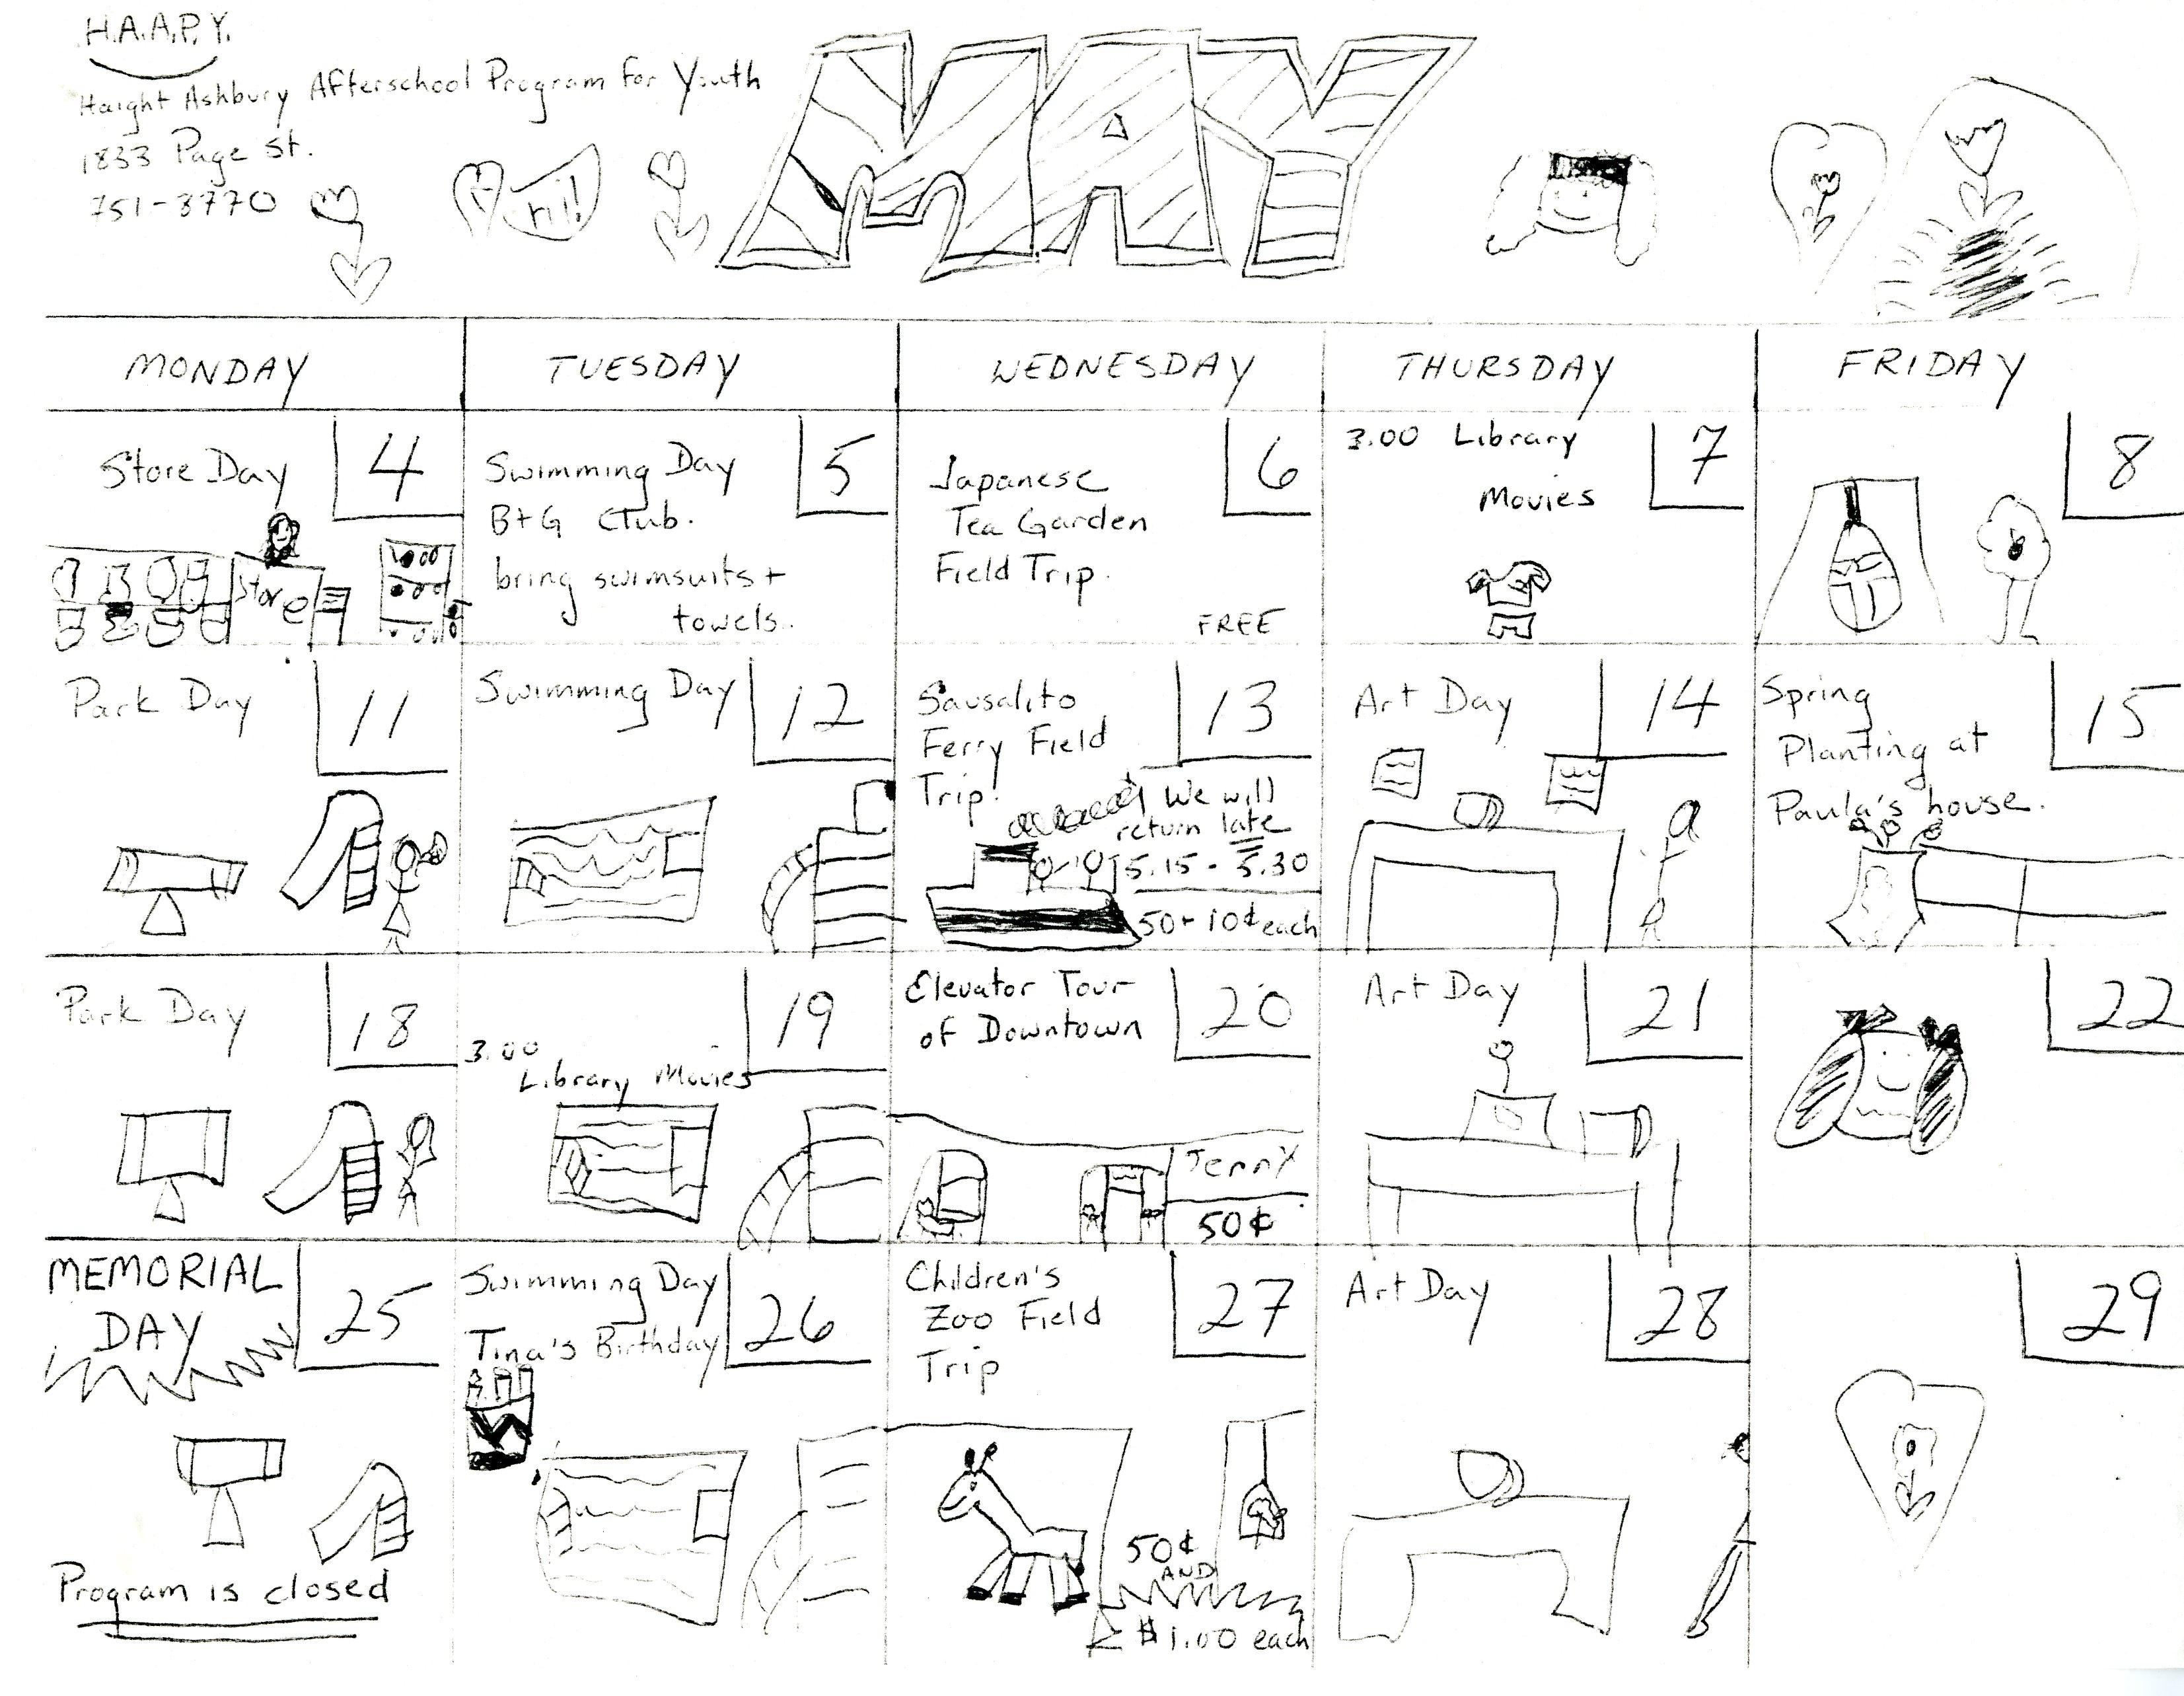 H.A.A.P.Y.
Haight Ashbury Afterschool Program for Youth
1833 Page St.
751-3770
MAY
MONDAY
TUESDAY
WEDNESDAY
THURSDAY
FRIDAY
Store Day
4
Store
Swimming Day
5
B+G Club.
bring swimsuits +
towels.
Japanese
6
Tea Garden
Field Trip.
FREE
3.00 Library
7
Movies
8
Park Day
11
Swimming Day
12
Sausalito
13
Ferry Field
Trip!
We will
return late
5.15 - 5.30
50+10¢ each
Art Day
14
Spring
15
Planting at
Paula's house.
Park Day
18
19
3.00
Library Movies
Elevator Tour
20
of Downtown
Jenny
50¢
Art Day
21
22
MEMORIAL
DAY
25
Program is closed
Swimming Day
26
Tina's Birthday
Children's
27
Zoo Field
Trip
50¢
AND
$1.00 each
Art Day
28
29